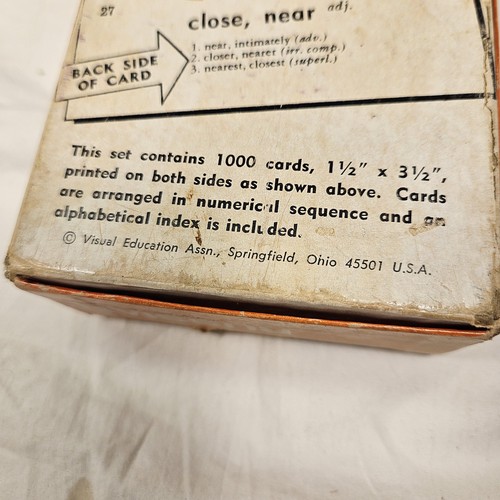 27
close, near adj.
BACK SIDE
OF CARD
1. near, intimately (adv.)
2. closer, nearer (irr. comp.)
3. nearest, closest (superl.)
This set contains 1000 cards, 1½" x 3½",
printed on both sides as shown above. Cards
are arranged in numerical sequence and an
alphabetical index is included.
© Visual Education Assn., Springfield, Ohio 45501 U.S.A.